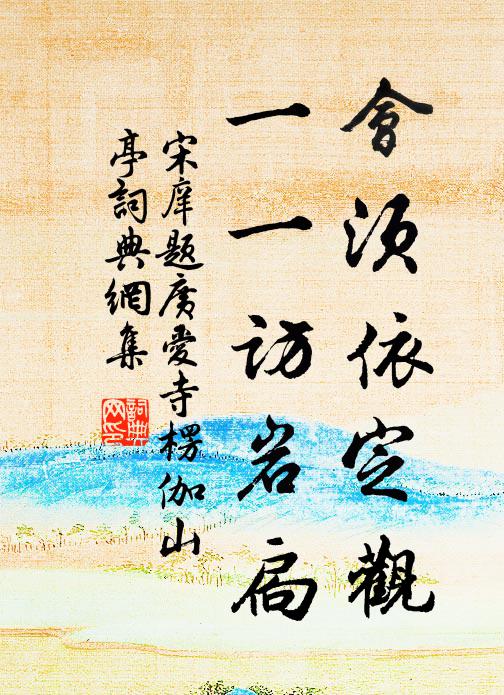 會須依定觀
一一訪岩扃
宋庠題廣愛寺楞伽山
亭詞典網集
詞典網印